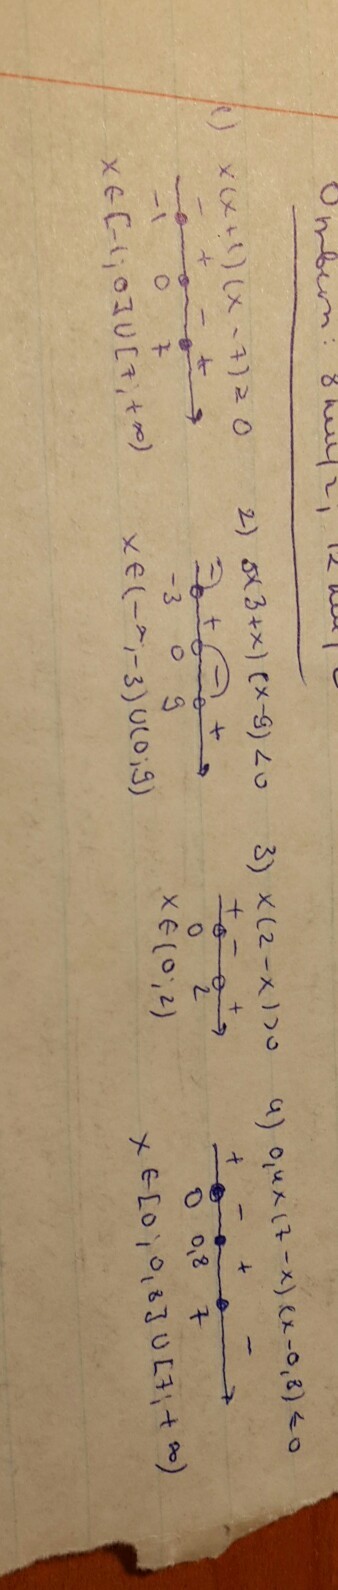 Ответ: 8 км/ч, 12 км/ч
1) x(x+1)(x-7)≥0
- + - +
-1 0 7
x∈[-1;0]∪[7;+∞)
2) 5x(3+x)(x-9)<0
- + - +
-3 0 9
x∈(-∞;-3)∪(0;9)
3) x(2-x)>0
+ - +
0 2
x∈(0;2)
4) 0,4x(7-x)(x-0,8)≤0
+ - + -
0 0,8 7
x∈[0;0,8]∪[7;+∞)